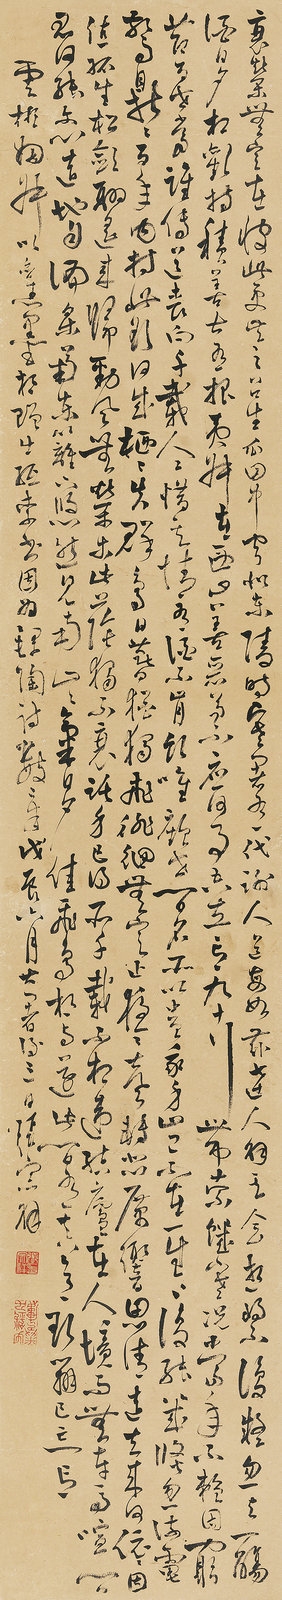 衰榮無定在彼此更共之邵生瓜田中寧似東陵時寒暑有代謝人道每如茲達人解其會逝將不復疑忽與一觴
酒日夕相歡持積善云有報夷叔在西山善惡苟不應何事空立言九十行帶索飢寒況當年不賴固窮
節百世當誰傳道喪向千載人人惜其情有酒不肯飲唯顧世間名所以貴我身豈不在一生一生復能幾倏忽流電
驚鼎鼎百年內持此欲何成栖栖失群鳥日暮猶獨飛徘徊無定止夜夜聲轉悲厲響思清遠去來何依依因
值孤生松斂翮遙來歸勁風無榮木此蔭獨不衰託身已得所千載不相違結廬在人境而無車馬喧問
君何能爾心遠地自偏采菊東籬下悠然見南山山氣日夕佳飛鳥相與還此間有真意欲辯已忘言
雲彬 以 書因為錄陶詩數章戊辰六月大暑後三日張宗祥